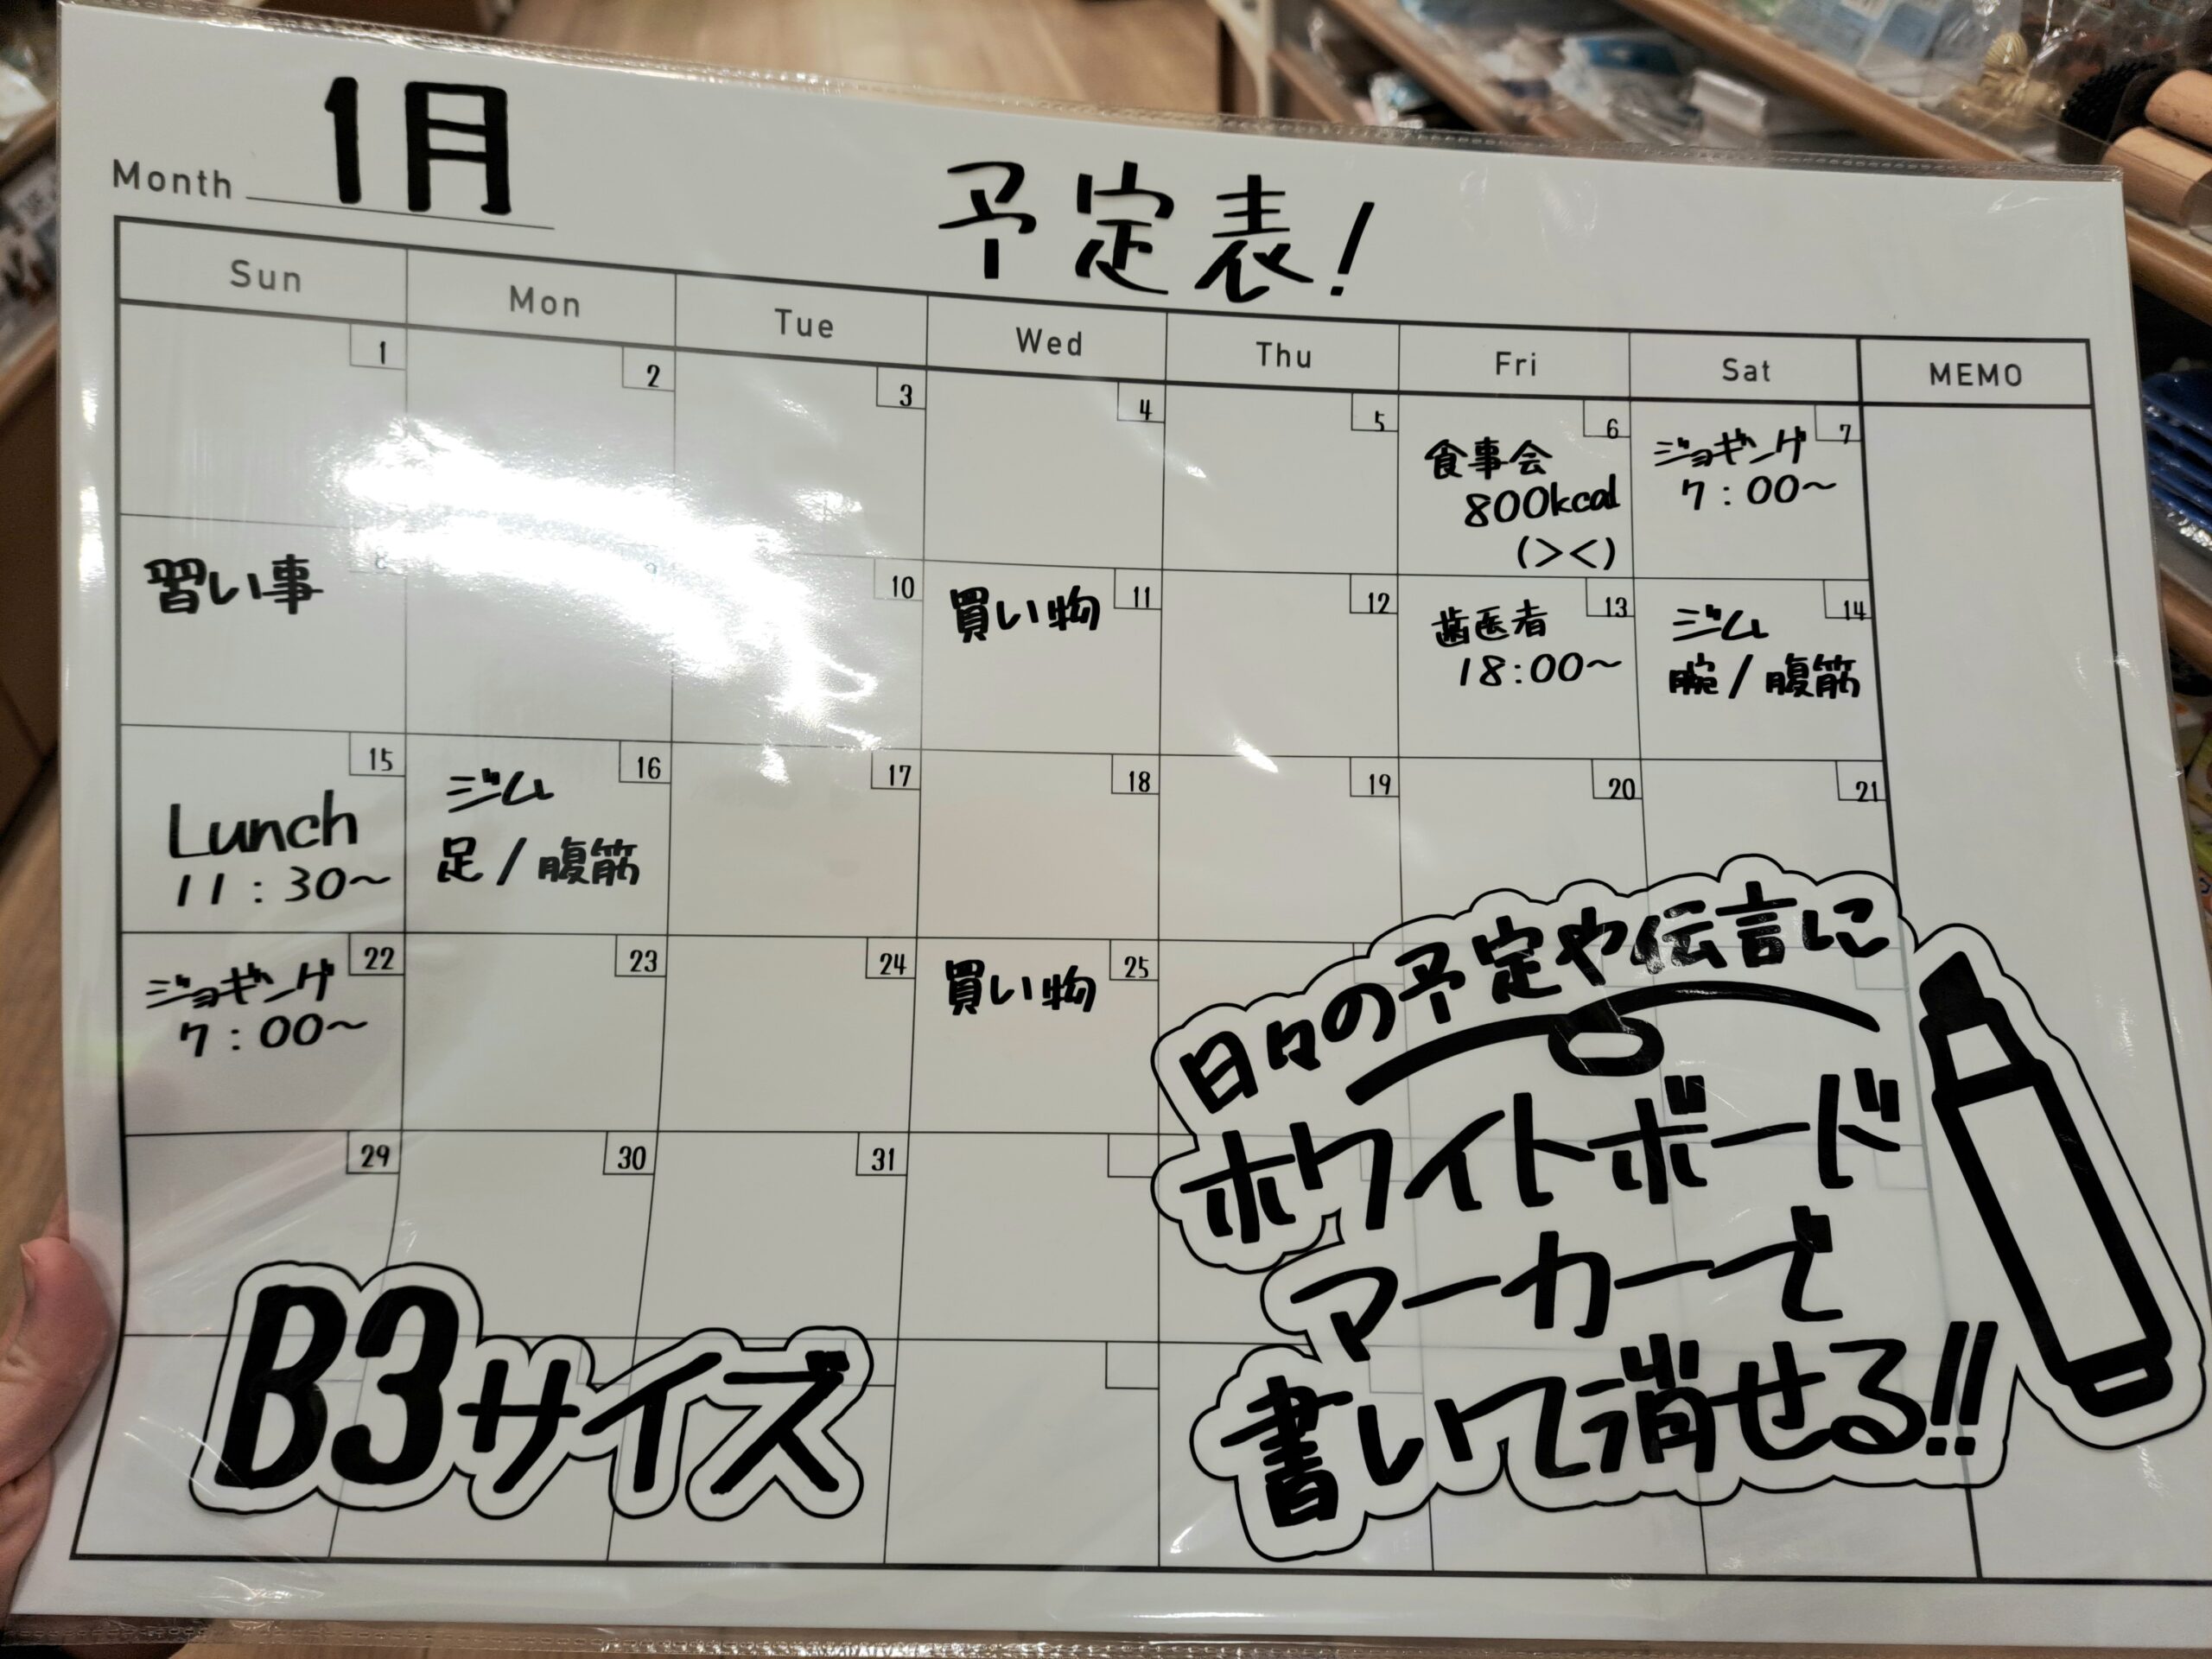 Month 1月
予定表!
Sun Mon Tue Wed Thu Fri Sat MEMO
1 2 3 4 5 6 7
食事会
800kcal
(><)
ジョギング
7:00~
8 9 10 11 12 13 14
習い事
買い物
歯医者
18:00~
ジム
腕/腹筋
15 16 17 18 19 20 21
Lunch
11:30~
ジム
足/腹筋
22 23 24 25
ジョギング
7:00~
買い物
29 30 31
日々の予定や伝言に
ホワイトボード
マーカーで
書いて消せる!!
B3サイズ